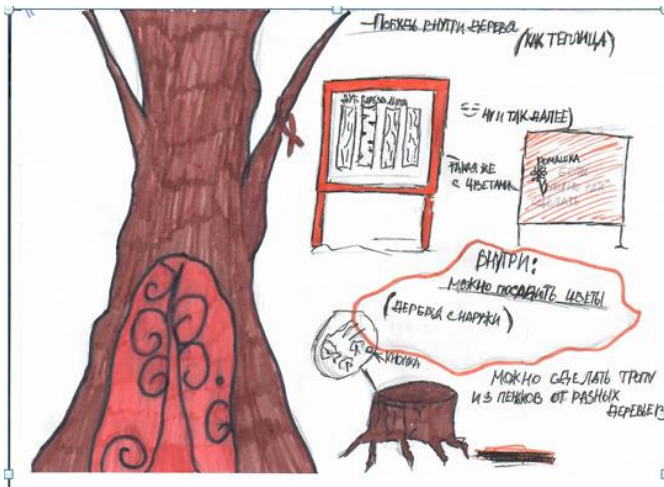 — Побудь внутри дерева
(как теплица)
Дуб Берёза Липа
ну и так далее)
такая же
с цветами
ромашка
ВНУТРИ:
можно посадить цветы
(деревья снаружи)
кнопка
можно сделать тропу
из пеньков от разных
деревьев